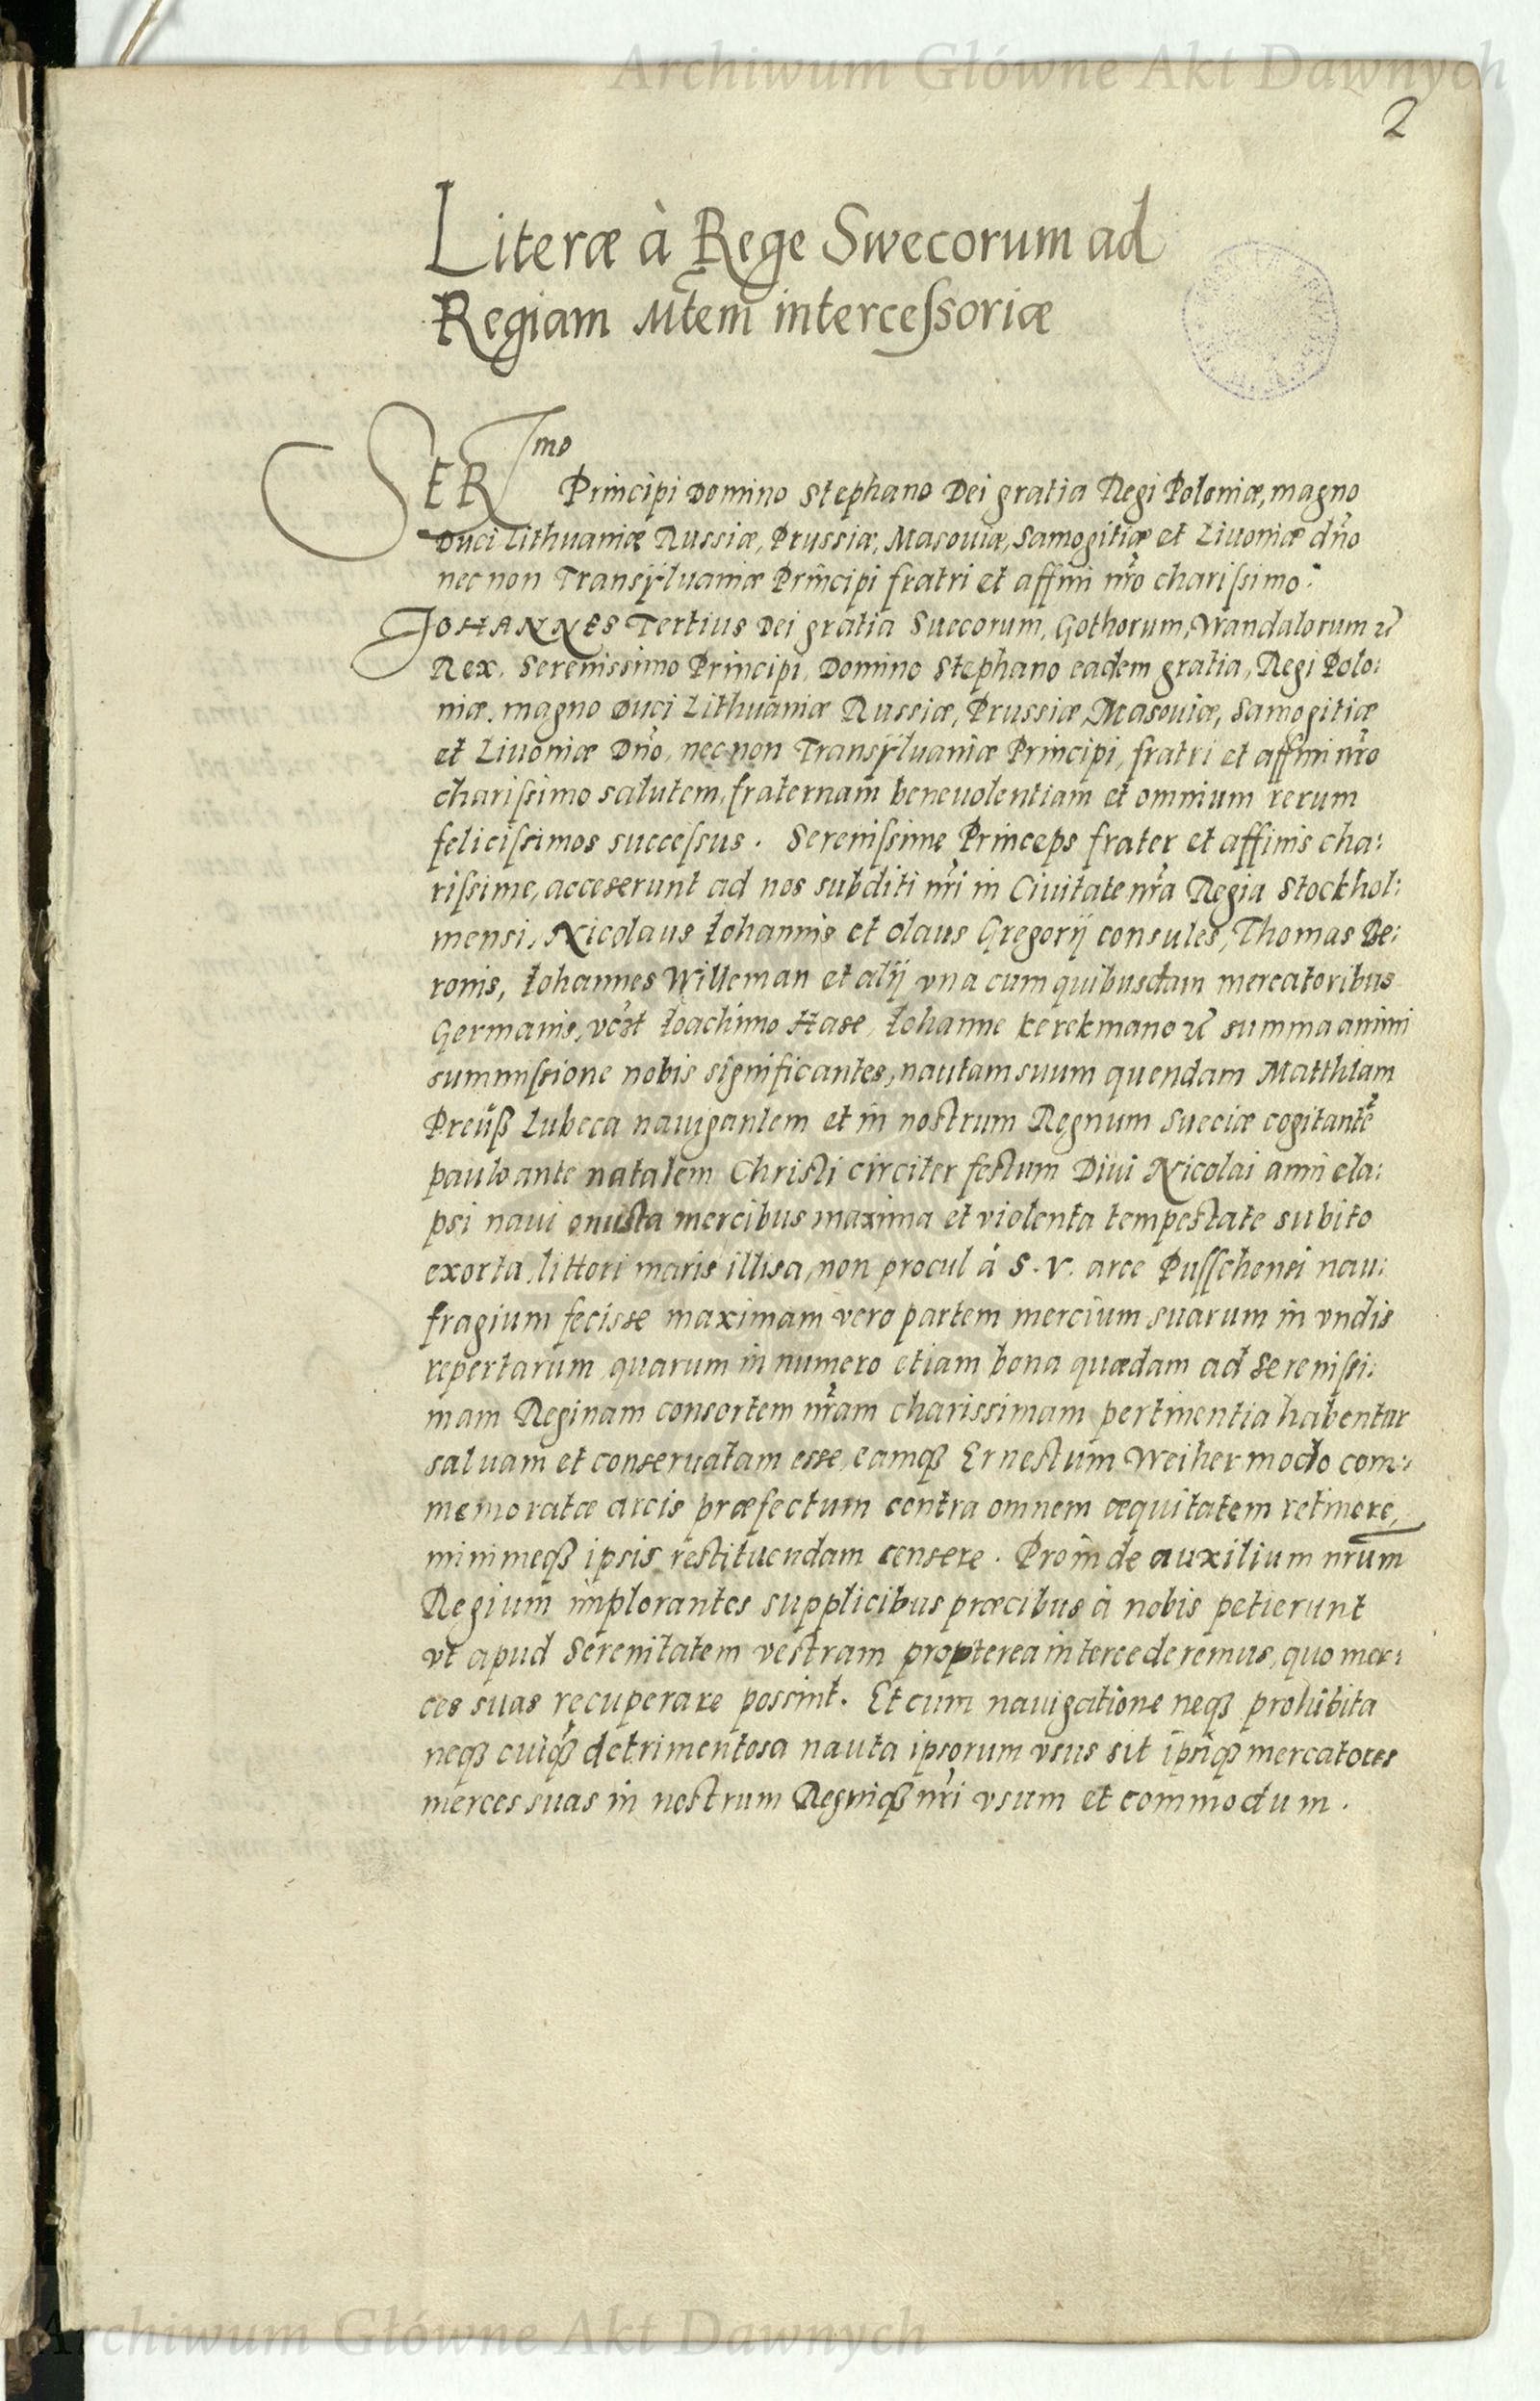 Archiwum Główne Akt Dawnych
2
Literæ à Rege Swecorum ad
Regiam Mtem intercessoriæ
SERmo Principi Domino Stephano Dei gratia Regi Poloniæ, magno
Duci Lithuaniæ Russiæ, Prussiæ, Masouiæ, Samogitiæ et Liuoniæ dno
nec non Transÿluaniæ Principi fratri et affini nro charissimo.
JOHANNES Tertius Dei gratia Suecorum, Gothorum, Wandalorum &c
Rex. Serenissimo Principi, Domino Stephano eadem gratia, Regi Polo:
niæ, magno Duci Lithuaniæ Russiæ, Prussiæ, Masouiæ, Samogitiæ
et Liuoniæ Dno, nec non Transÿluaniæ Principi, fratri et affini nro
charissimo salutem, fraternam beneuolentiam et omnium rerum
felicissimos successus. Serenissime Princeps frater et affinis cha:
rissime, acceserunt ad nos subditi nri in Ciuitate nra Regia Stockhol:
mensi, Nicolaus Iohannis et olaus Gregorij consules, Thomas De:
ronis, Iohannes Willeman et alij vna cum quibusdam mercatoribus
Germanis, vczt Ioachimo Hase, Iohanne kerekmano &c summa animi
summissione nobis significantes, nautam suum quendam Matthiam
Preüß Lubeca nauigantem et in nostrum Regnum Sueciæ cogitantē
paulo ante natalem Christi circiter festum Diui Nicolai anni ela:
psi naui onusta mercibus maxima et violenta tempestate subito
exorta, littori maris illisa, non procul à S. V. arce Pusschensi nau:
fragium fecisse maximam vero partem mercium suarum in vndis
repertarum quarum in numero etiam bona quædam ad serenissi:
mam Reginam consortem nram charissimam pertinentia habentur
saluam et conseruatam esse, eamqȝ Ernestum Weiher modo com:
memoratæ arcis præfectum contra omnem æquitatem retinere,
minimeqȝ ipsis restituendam censere. Proinde auxilium nrum
Regium implorantes supplicibus præcibus à nobis petierunt
vt apud Serenitatem vestram propterea intercederemus, quo mer:
ces suas recuperare possint. Et cum nauigatione neqȝ prohibita
neqȝ cuiqȝ detrimentosa nauta ipsorum vsus sit ipsiqȝ mercatores
merces suas in nostrum Regniqȝ nri vsum et commodum.
Archiwum Główne Akt Dawnych